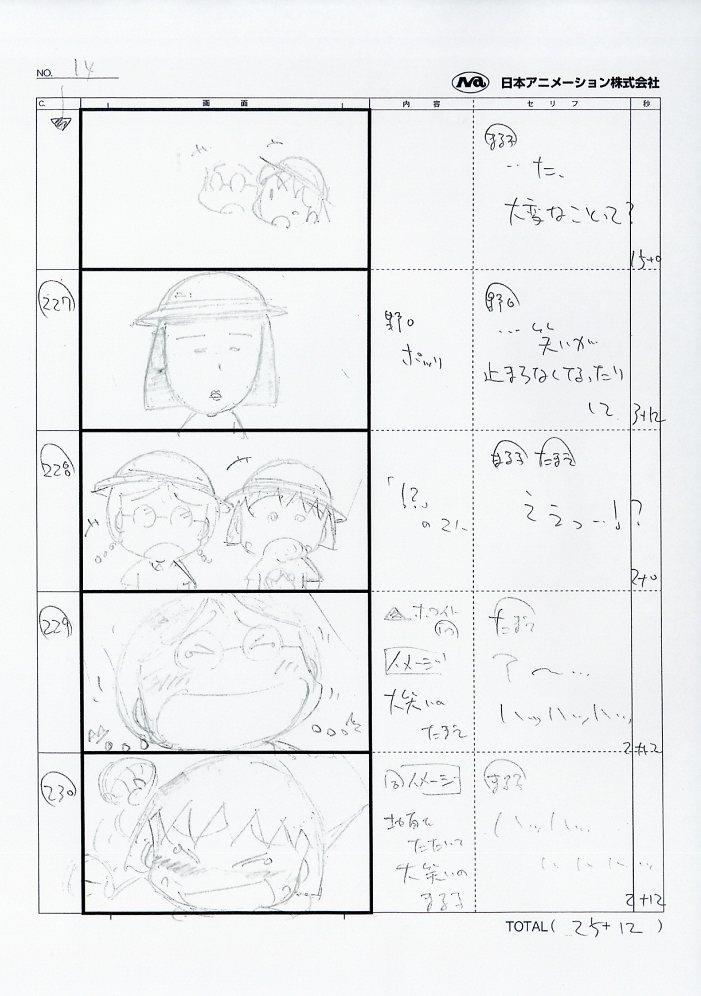 NO. 14
日本アニメーション株式会社
C. 画面 内容 セリフ 秒
まる子
…た、
大変なことって?
15+0
227
野口
ポツリ
野口
… 笑いが
止まらなくなったり
して
3+12
228
「!?」
の2人
まる子 たまえ
ええっ…!?
2+0
229
ホワイト
イメージ
大笑いの
たまえ
たまえ
ア〜…
ハッハッハッ
2+12
230
イメージ
地面を
たたいて
大笑いの
まる子
まる子
ハッハッ…
2+12
TOTAL( 25+12 )